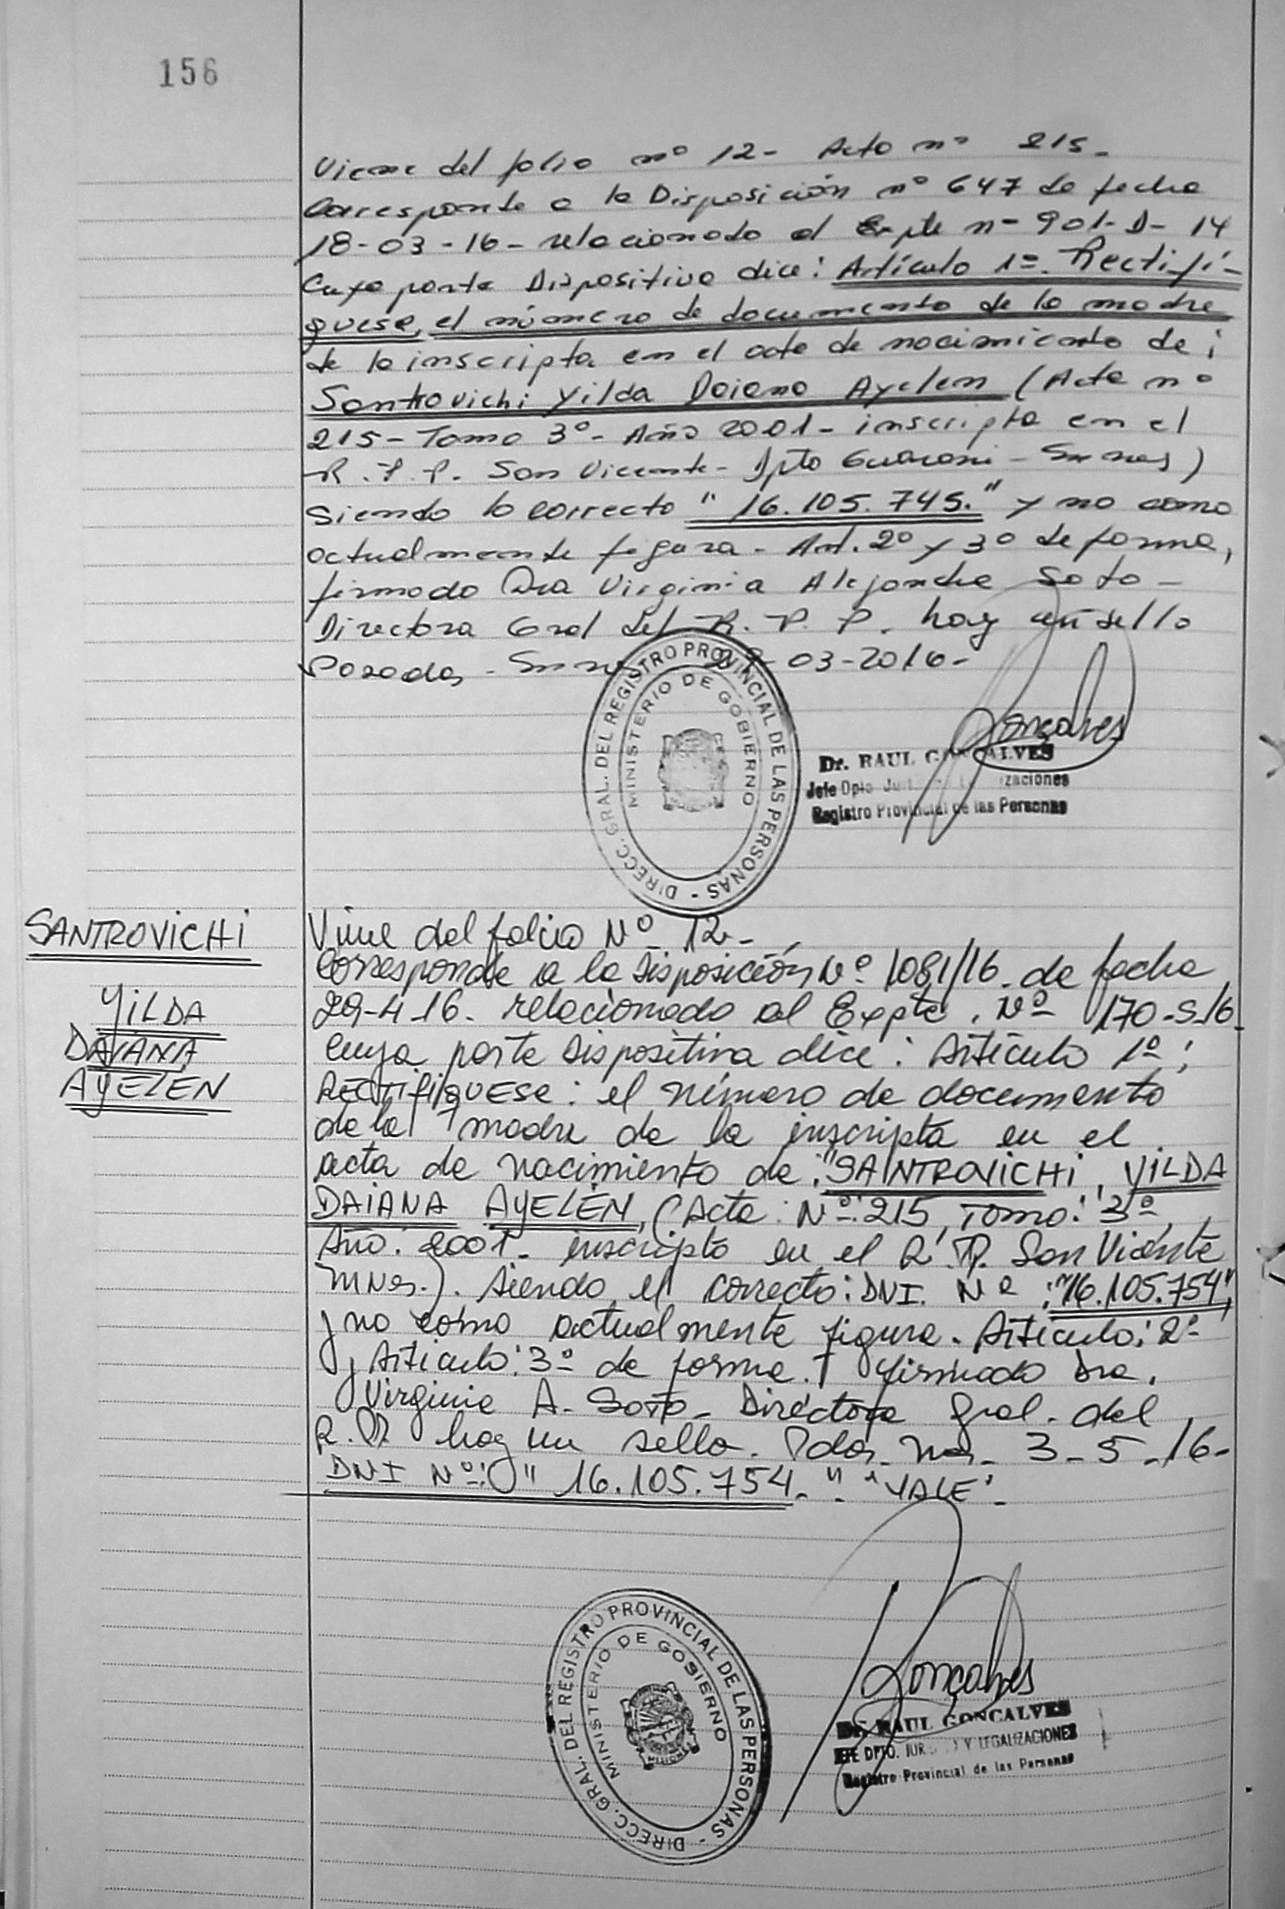 156
Viene del folio nº 12- Acta nº 215-
Corresponde a la Disposición nº 647 de fecha
18-03-16- relacionado al Expte nº 901-D-14
Cuya parte Dispositiva dice: Artículo 1º- Rectifí-
quese, el número de documento de la madre
de la inscripta en el acta de nacimiento de:
Santrovichi Yilda Daiana Ayelen (Acta nº
215- Tomo 3º- Año 2001- inscripta en el
R.P.P. San Vicente- Dpto Guarani- )
Siendo lo correcto "16.105.745." y no como
actualmente figura- Art. 2º y 3º de forma,
firmado Dra Virginia Alejandra Soto-
Directora Gral del R.P.P. hay un sello
Posadas- -03-2016-
DIRECC. GRAL. DEL REGISTRO PROVINCIAL DE LAS PERSONAS -
MINISTERIO DE GOBIERNO
Goncalves
Dr. RAUL GONCALVES
Jefe Dpto.
Registro Provincial de las Personas
SANTROVICHI
YILDA
DAIANA
AYELEN
Viene del folio Nº 12-
Corresponde a la Disposición Nº 1081/16 de fecha
29-4-16- relacionado al Expte. Nº 170-S-16
cuya parte dispositiva dice: Artículo 1º:
RECTIFIQUESE: el número de documento
de la madre de la inscripta en el
acta de nacimiento de: "SANTROVICHI, YILDA
DAIANA AYELÉN, (Acta: Nº: 215, Tomo: 3º,
Año: 2001- inscripto en el R.P. San Vicente
Mnes.). Siendo el correcto: DNI. Nº: "16.105.754"
y no como actualmente figura. Artículo: 2º
y Artículo: 3º de forma. Firmado Dra.
Virginia A. Soto- Directora Gral. del
R.P. hay un sello. Pdas. Mnes- 3-5-16-
DNI Nº: "16.105.754-". "VALE"-
DIRECC. GRAL. DEL REGISTRO PROVINCIAL DE LAS PERSONAS -
MINISTERIO DE GOBIERNO
Goncalves
Dr. RAUL GONCALVES
JEFE DPTO. Y LEGALIZACIONES
Registro Provincial de las Personas